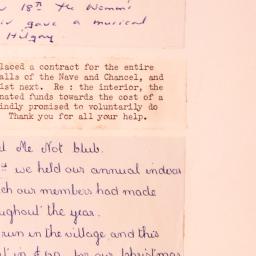 18th the Women's
gave a musical
Hilgay
laced a contract for the entire
alls of the Nave and Chancel, and
ist next. Re : the interior, the
nated funds towards the cost of a
indly promised to voluntarily do
Thank you for all your help.
Me Not blub.
we held our annual indoor
ch our members had made
ughout the year.
run in the village and this
for our Christmas